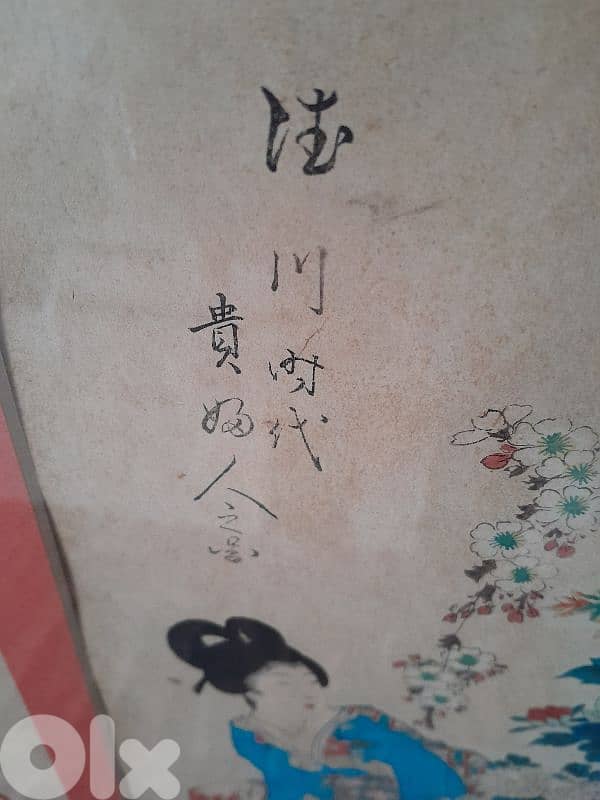 徳川時代
貴婦人之図
OLX